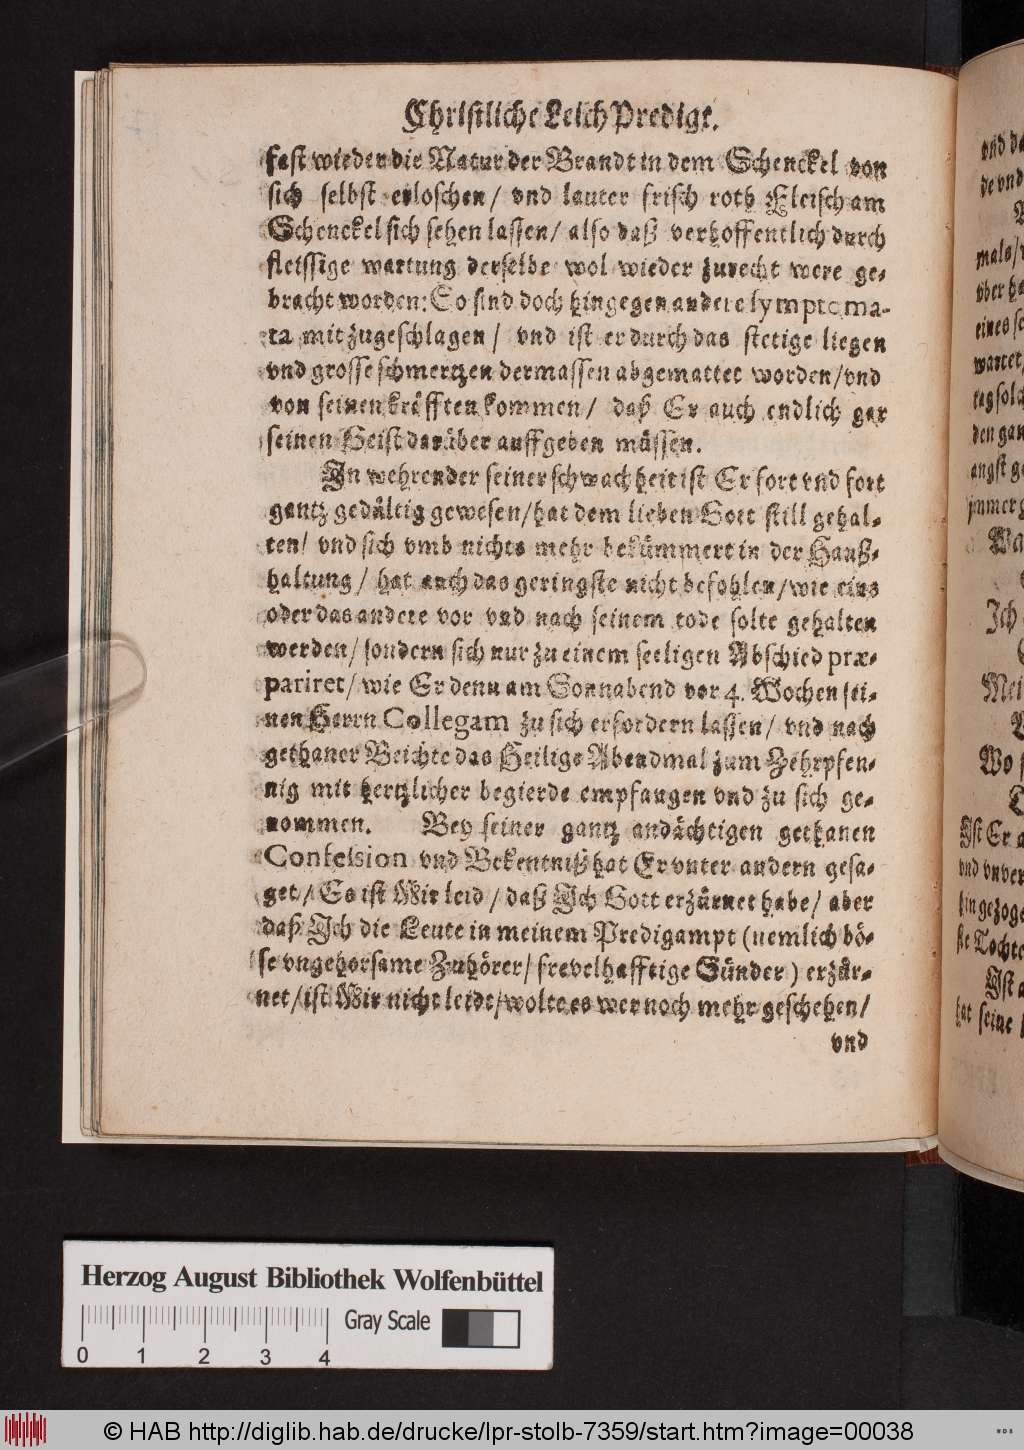 Christliche LeichPredigt.
fast wieder die Natur der Brandt in dem Schenckel von
sich selbst erloschen / vnd lauter frisch roth Fleisch am
Schenckel sich sehen lassen / also daß verhoffentlich durch
fleissige wartung derselbe wol wieder zurecht were ge-
bracht worden: So sind doch hingegen andere symptoma-
ta mit zugeschlagen / vnd ist er durch das stetige liegen
vnd grosse schmertzen dermassen abgemattet worden / vnd
von seinen kräfften kommen / daß Er auch endlich gar
seinen Geist darüber auffgeben müssen.
In wehrender seiner schwachheit ist Er fort vnd fort
gantz gedültig gewesen / hat dem lieben Gott still gehal-
ten / vnd sich vmb nichts mehr bekümmert in der Hauß-
haltung / hat auch das geringste nicht befohlen / wie eins
oder das andere vor vnd nach seinem tode solte gehalten
werden / sondern sich nur zu einem seeligen Abschied præ-
pariret / wie Er denn am Sonnabend vor 4. Wochen sei-
nen Herrn Collegam zu sich erfordern lassen / vnd nach
gethaner Beichte das Heilige Abendmal zum Zehrpfen-
nig mit hertzlicher begierde empfangen vnd zu sich ge-
nommen. Bey seiner gantz andächtigen gethanen
Confession vnd Bekentniß hat Er vnter andern gesa-
get / Es ist Mir leid / daß Ich Gott erzürnet habe / aber
daß Ich die Leute in meinem Predigampt (nemlich bö-
se vngehorsame Zuhörer / frevelhafftige Sünder) erzür-
net / ist Mir nicht leidt / wolte es wer noch mehr geschehen /
vnd
vnd
de vnd
mals /
vber
eines
wartet
den gan
angst
jmmer
Wa
Ich
Mei
Wo
Ist Er
vnd vnver
hingezoge
Tochte
Ist
hat seine
Herzog August Bibliothek Wolfenbüttel
Gray Scale
0 1 2 3 4
© HAB http://diglib.hab.de/drucke/lpr-stolb-7359/start.htm?image=00038